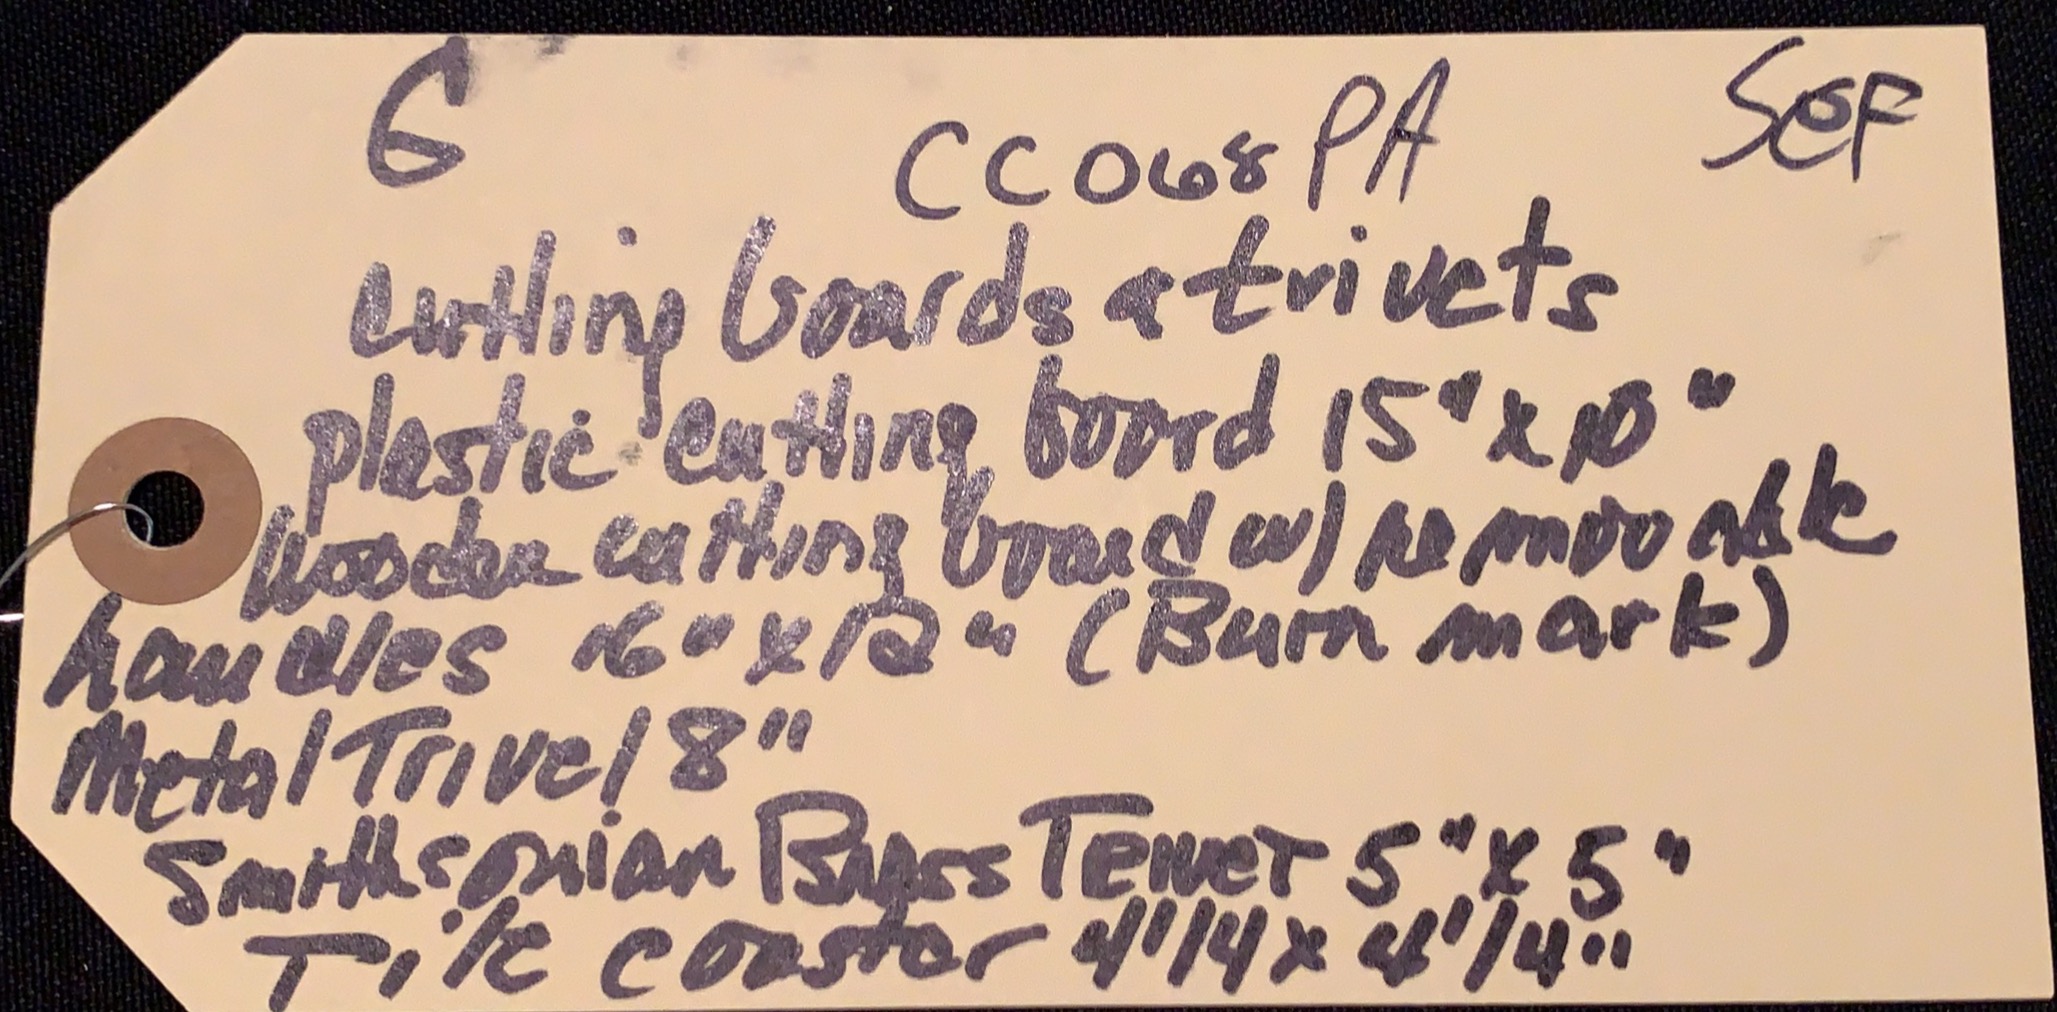 G CC068PA
cutting boards & trivets
plastic cutting board 15" x 10"
Wooden cutting board w/ removable
handles 16" x 12" (Burn mark)
Metal Trivet 8"
Smithsonian Brass Tewet 5" x 5"
Tile coaster 4 1/4 x 4 1/4"